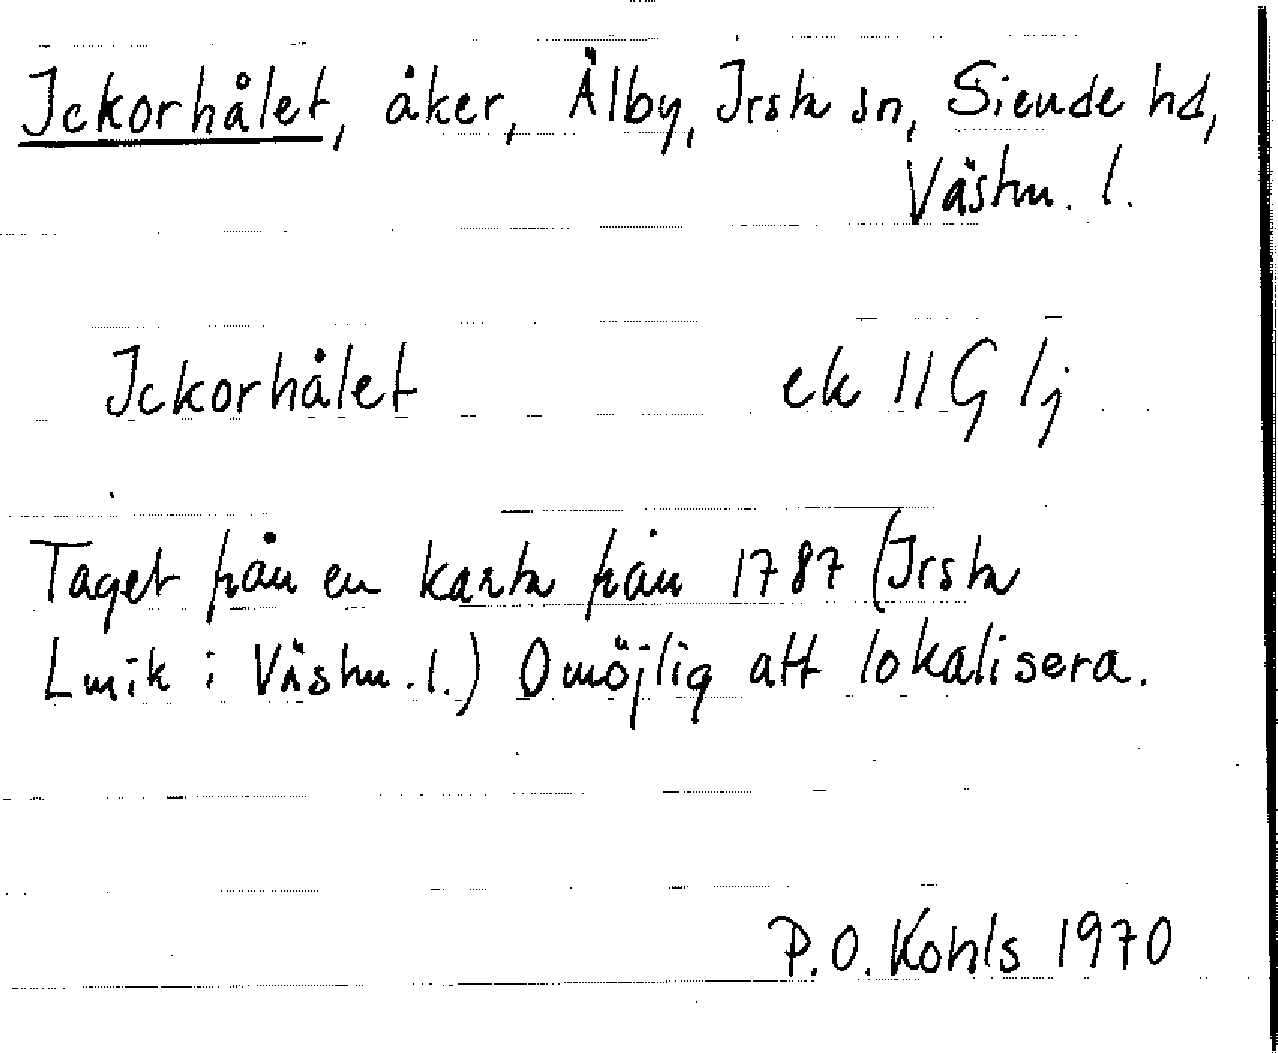 Ickorhålet, åker, Älby, Irsta sn, Siende hd,
Västm. l.
Ickorhålet ek 11G 1j
Taget från en karta från 1787 (Irsta
Lmik i Västm. l.) Omöjlig att lokalisera.
P.O. Kohls 1970